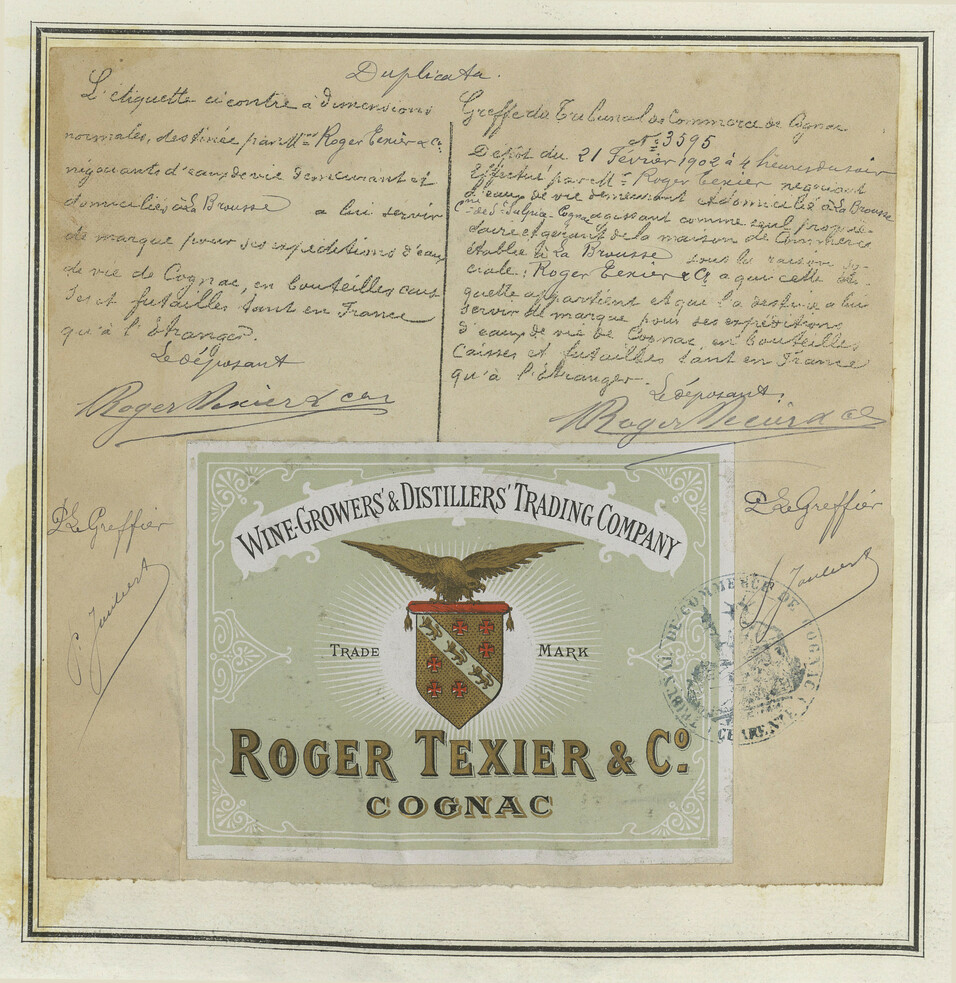 Duplicata.
L'etiquette ci contre à dimensions
normales, destinée par Mrs Roger Texier & Cie
négociants d'eaux de vie demeurant et
domiciliés à La Brousse a lui servir
de marque pour ses expéditions d'eaux
de vie de Cognac, en bouteilles cais
ses et futailles tant en France
qu'à l'étranger.
Le déposant
Roger Texier & Cie
P. Le Greffier
Greffe du Tribunal de Commerce de Cognac
No 3595
Depôt du 21 Février 1902 à 4 heures du soir
Effectué par Mr Roger Texier negociant
d'eaux de vie demeurant et domicilié à La Brousse
Cne de St Sulpice Cognac agissant comme seul proprié-
taire et gérant de la maison de Commerce
établie à La Brousse sous la raison so-
ciale: Roger Texier & Cie a qui cette éti-
quette appartient et qui l'a destiné a lui
servir de marque pour ses expéditions
d'eaux de vie de Cognac, en bouteilles
caisses et futailles tant en France
qu'à l'étranger.
Le déposant.
Roger Texier & Cie
P. Le Greffier
WINE-GROWERS' & DISTILLERS' TRADING COMPANY
TRADE MARK
ROGER TEXIER & Co.
COGNAC
TRIBUNAL DE COMMERCE DE COGNAC
CHARENTE